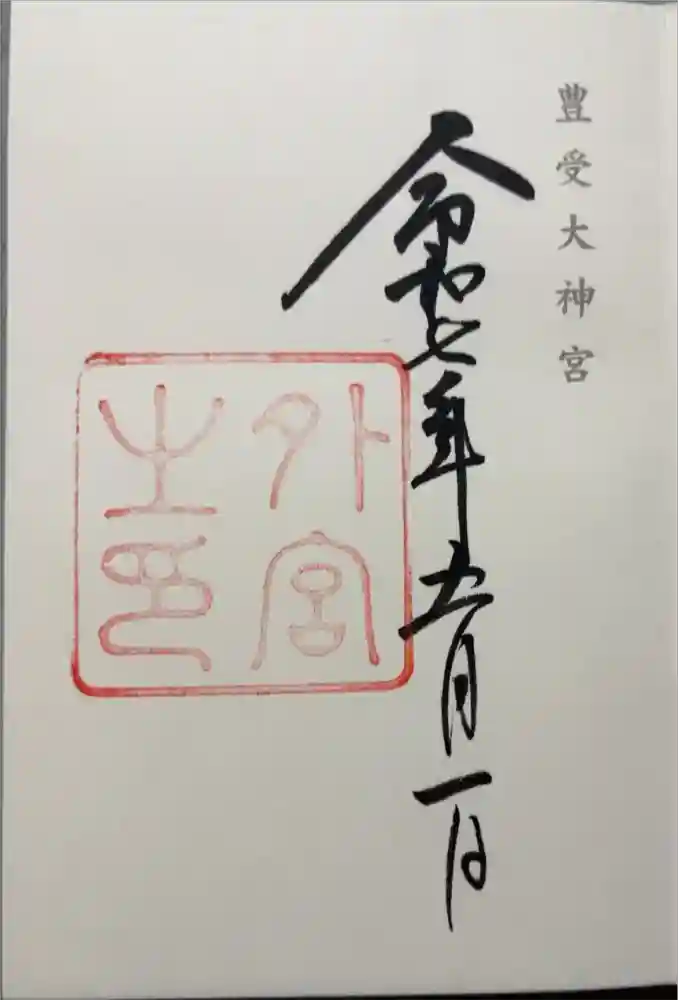 豊受大神宮
令和七年五月一日
外宮
之印